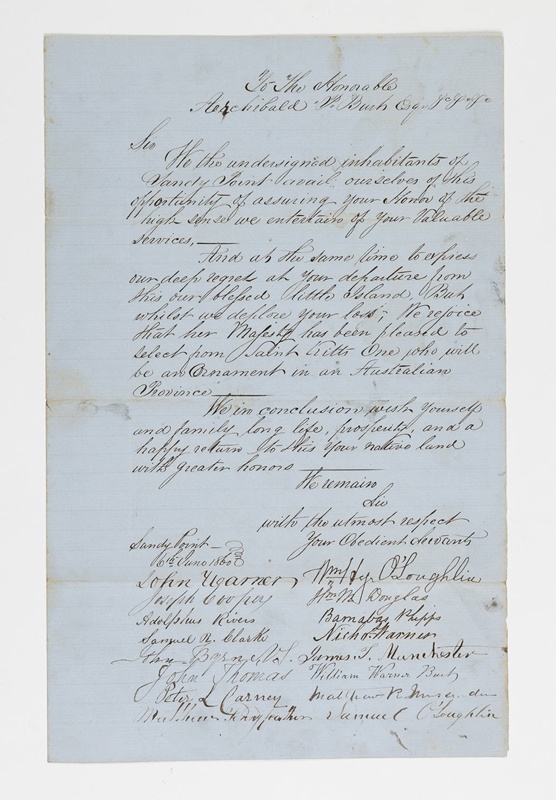 To The Honorable
Archibald P. Burt Esqr
Sir
We the undersigned inhabitants of
Sandy Point avail ourselves of this
opportunity of assuring your Honor of the
high sense we entertain of your Valuable
services,
And at the same time to express
our deep regret at your departure from
this our blessed little Island, But
whilst we deplore your loss, We rejoice
that her Majesty has been pleased to
select from Saint Kitts One who will
be an Ornament in an Australian
Province
We in conclusion wish yourself
and family long life, prosperity, and a
happy return to this your native land
with greater honors
We remain
Sir
with the utmost respect
Your Obedient Servants
Sandy Point
16th June 1860
John Warner
Wm Hy O'Loughlin
Joseph Cooper
Wm M Douglas
Adolphus Rivers
Barnabas Phipps
Samuel N. Clarke
Nichs Warner
James S. Manchester
John Thomas
William Warner Burt
Peter L Carney
Samuel O'Loughlin